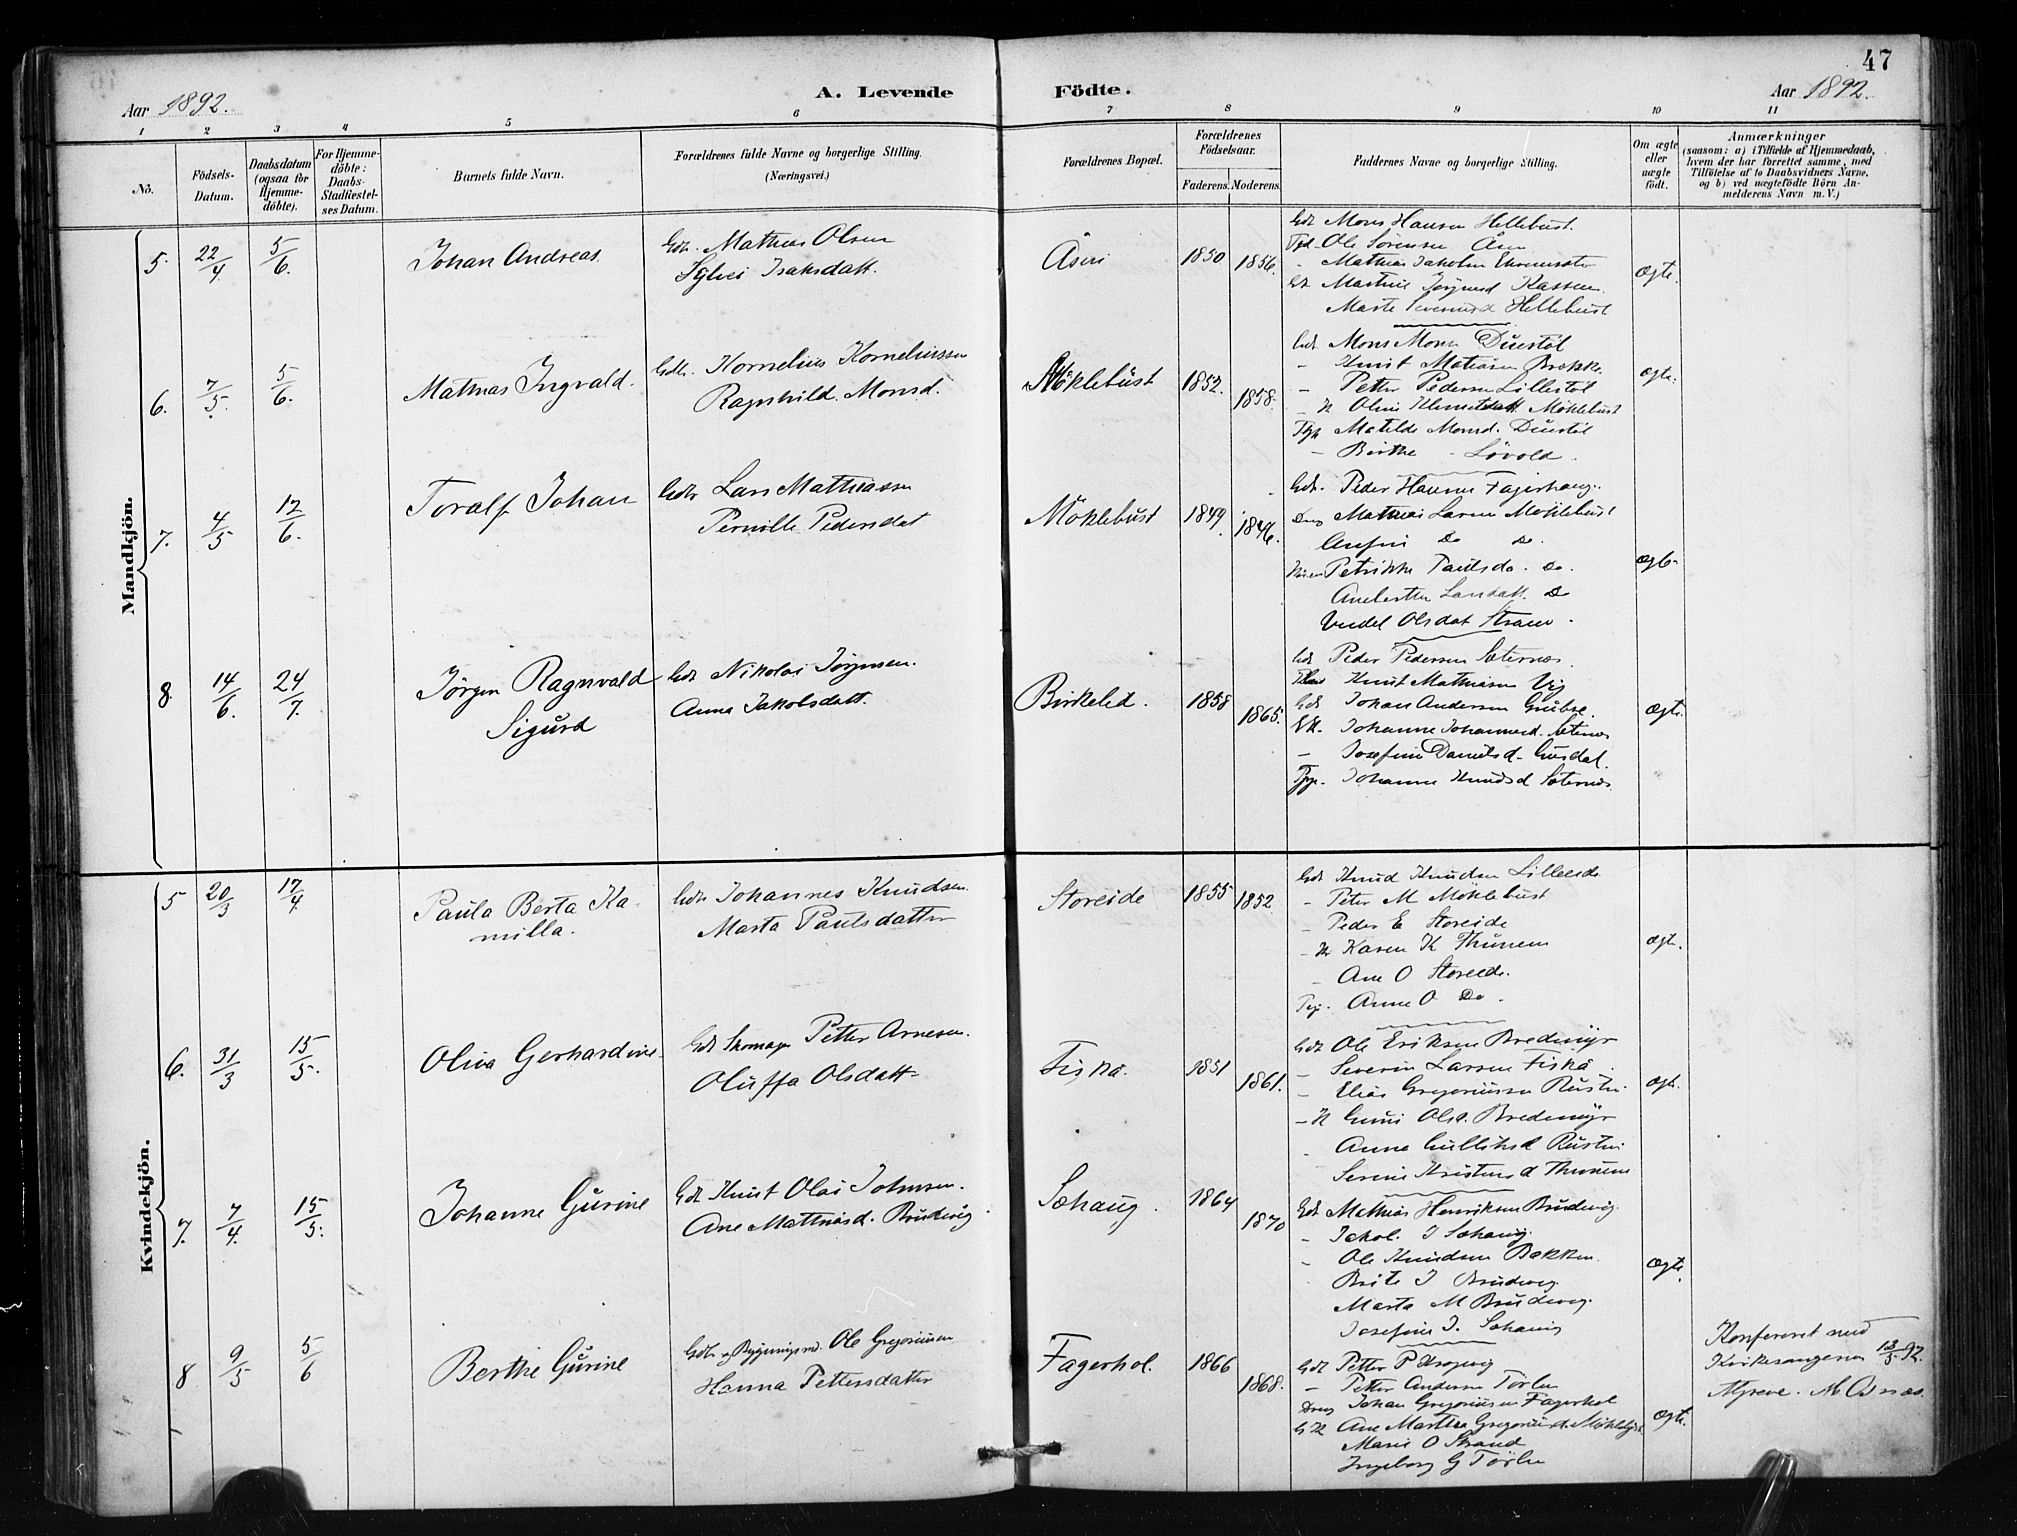 47
Aar 1892.
A. Levende Födte.
Aar 1892.
1 2 3 4 5 6 7 8 9 10 11
No.
Födsels-Datum.
Daabsdatum (ogsaa for Hjemme-döbte).
For Hjemme-döbte: Daabs-Stadfæstel-ses Datum.
Barnets fulde Navn.
Forældrenes fulde Navne og borgerlige Stilling.
(Næringsvei.)
Forældrenes Bopæl.
Forældrenes Födselsaar.
Faderens. Moderens.
Faddernes Navne og borgerlige Stilling.
Om ægte eller uægte födt.
Anmærkninger
(saasom: a) i Tilfælde af Hjemmedaab,
hvem der har forrettet samme, med
Tilföielse af to Daabsvidners Navne,
og b) ved uægtefödte Börn An-
melderens Navn m. V.)
Mandkjön.
5. 22/4 5/6.
Johan Andreas
Gdbr. Mathias Olsen
Sylvi Isaksdatt.
Åsen 1850 1856.
Gdr Mons Hansen Hellebust.
Ole Sörensen Åsen
- Mathias Jakobsen
Martine Jörgensd Kassen.
Marte Severinsd Hellebust
Ægte.
6. 7/5. 5/6.
Mathias Ingvald.
Gdbr. Kornelius Korneliussen
Ragnhild. Monsd.
Möklebust 1852. 1858.
Gdr. Mons Monsen Duestöl
- Knut Matiasen Brekke.
- Petter Pedersen Lillestöl
- K Oline Klemetsdatt Möklebust
Matilde Monsd. Duestöl
- Birthe - Lövold.
Ægte.
7. 4/5 12/6.
Toralf Johan
Gdbr Lars Mathiassen
Pernille Pedersdat
Möklebust 1849. 1846.
Gdr. Peder Hansen Fagerhaug.
Drg Mathias Larsen Möklebust
Do Do.
Petrikke Paulsda. Do.
Larsdatt. Do
Olsdat Strand.
Ægte.
8. 14/6. 24/7.
Jörgen Ragnvald
Sigurd
Gdr Nikolai Jörgensen.
Anna Jakobsdatt.
Birkelid. 1858 1865.
Gdr Peder Pedersen Sæternes.
Knut Mathiasen Vig
Gdr Johan Andersen
Johanne Johannesd. Sæternes
- Josefine Danielsd.
Johanne Knudsd Sæternes.
Ægte.
Kvindekjön.
5 20/3 17/4.
Paula Berta Ka-
milla.
Gdbr Johannes Knudsen.
Marta Paulsdatter
Storeide 1855 1852
Gdr Knud Knudsen
- Peter M Möklebust
- Peder E Storeide
- K Karen K Thunem
- Ane O Storeide.
Pige. Anne O Do.
ægt.
6. 31/3 15/5.
Oliva Gerhardine
Gdr Skomager Petter Arnesen.
Oluffa Olsdatt-
Fiskå. 1851 1861.
Gdr Ole Eriksen Bredemyr
- Severin Larsen Fiskå.
- Elias Gregoriussen Rusten.
- K Guni Olsd. Bredemyr
- Anna Gulliksd Rusten.
Serine Kristensd Thunem
ægt.
7. 7/4. 15/5.
Johanne Gurine
Gdr Knut Olai Johnsen.
Ane Mathiasd. Brudevig
Sæhaug. 1864 1870
Gdr Mathias Henriksen Brudevig.
- Jakob J Sæhaug.
- Ole Knudsen Bakken.
Brite J Brudevig
Marta M Brudevig.
Josefine J. Sæhaug
Ægte.
8 9/5 5/6
Berthe Gurine
Gdbr og Bygningsm. Ole Gregoriusen
Hanna Pettersdatter
Fagerhol. 1866 1868.
Gdr Petter P
- Petter Andersen Törlen
Dreng Johan Gregoriusen Fagerhol
G K Ane Marthea Gregoriusd. Möklebust
Marie O Strand
Ingeborg G Törlen
Ægte.
Konfereret med
Kirkesangeren 13/5 92.
Myreve. M Osnæs.